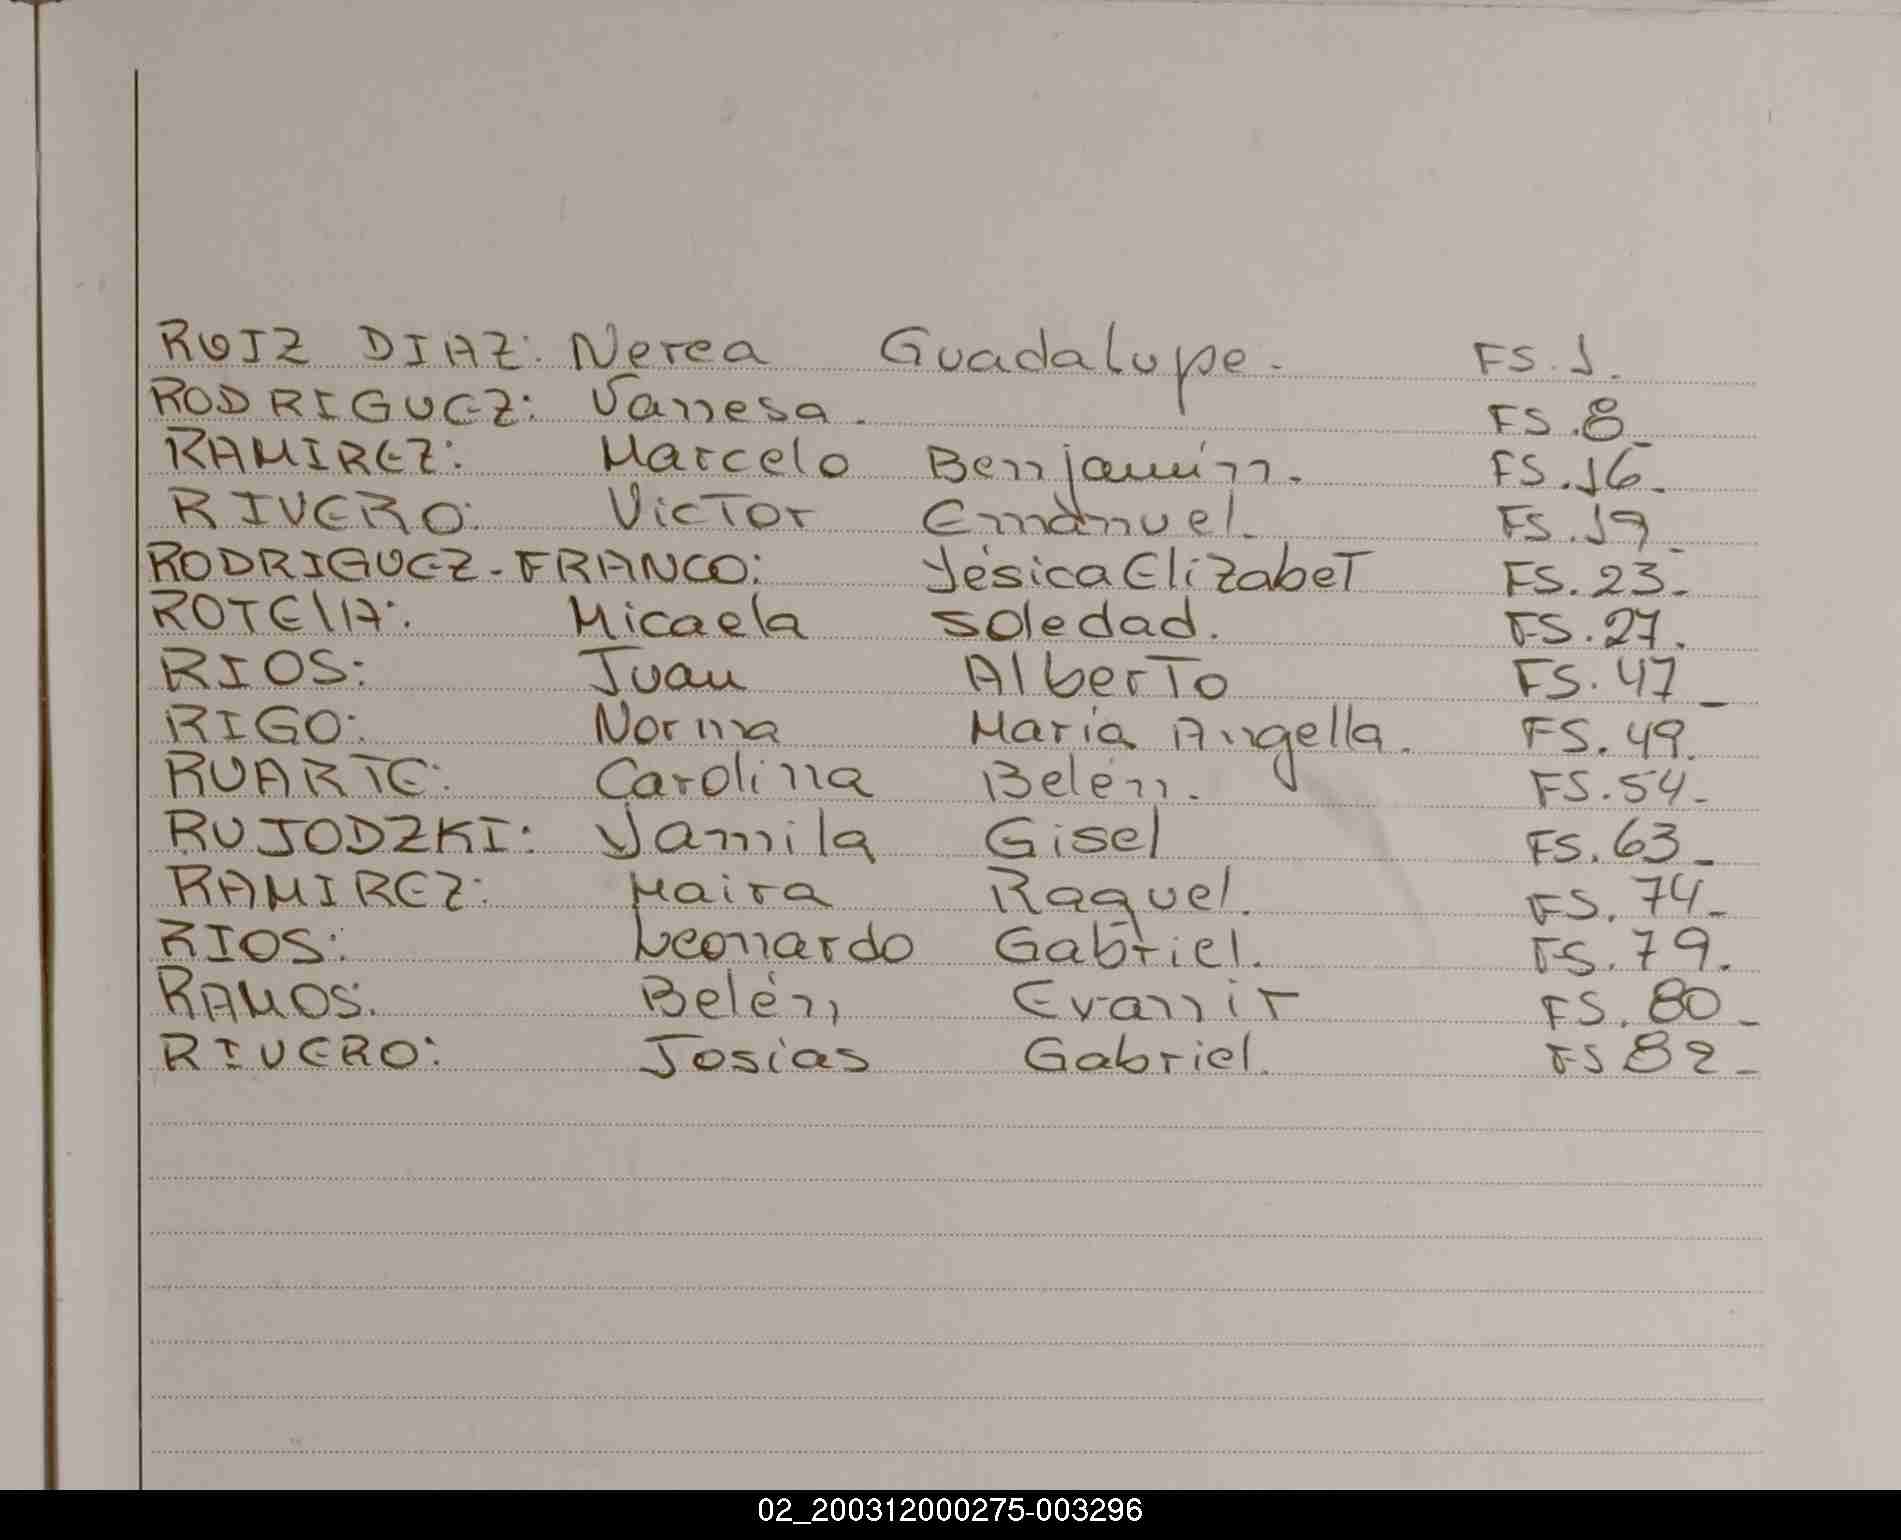 RUIZ DIAZ: Nerea Guadalupe. FS. 1.
RODRIGUEZ: Vanesa. FS. 8_
RAMIREZ: Marcelo Benjamín. FS. 16_
RIVERO: Victor Emanuel. FS. 19_
RODRIGUEZ-FRANCO: Yésica Elizabet FS. 23_
ROTELlA: Micaela Soledad. FS. 27.
RIOS: Juan Alberto FS. 47_
RIGO: Norma María Angella. FS. 49.
RUARTE: Carolina Belén. FS. 54_
RUJODZKI: Yamila Gisel FS. 63_
RAMIREZ: Maira Raquel. FS. 74_
RIOS: Leonardo Gabriel. FS. 79.
RAMOS: Belén Evanir FS. 80_
RIVERO: Josias Gabriel. FS 82_
02_200312000275-003296